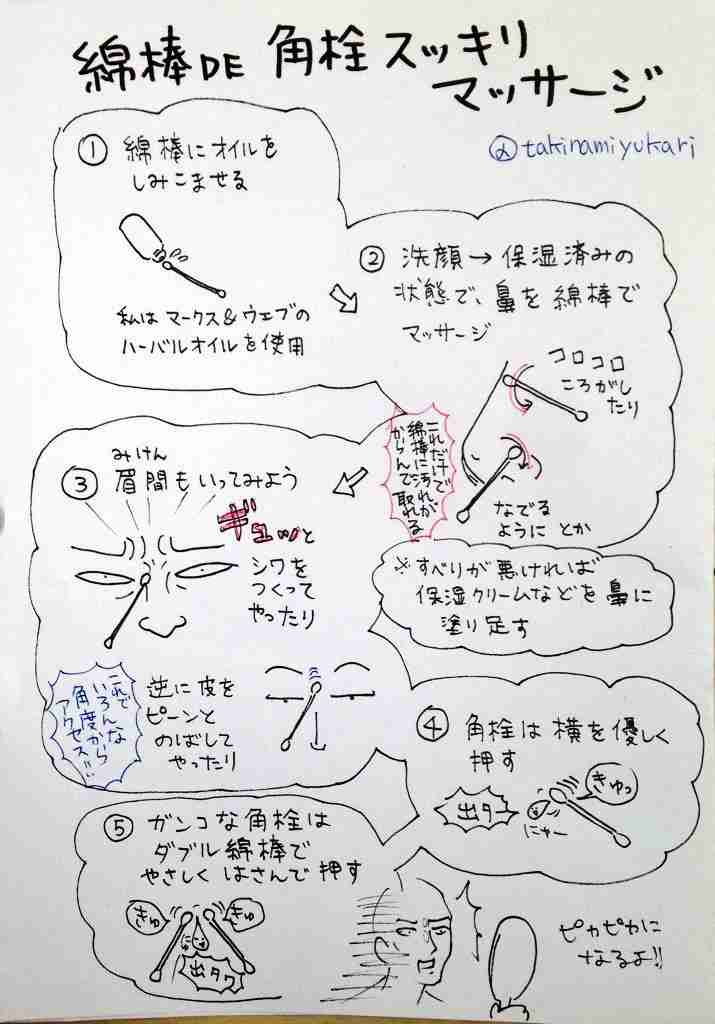 綿棒DE 角栓スッキリ
マッサージ
@takinamiyukari
① 綿棒にオイルを
しみこませる
私は マークス&ウェブの
ハーバルオイルを使用
② 洗顔→保湿済みの
状態で、鼻を綿棒で
マッサージ
コロコロ
ころがし
たり
なでる
ように とか
これだけで
綿棒に汚れが
からんで取れる
※すべりが悪ければ
保湿クリームなどを鼻に
塗り足す
みけん
③ 眉間もいってみよう
ギュッと
シワを
つくって
やったり
逆に皮を
ピーンと
のばして
やったり
これで
いろんな
角度から
アクセス!!
④ 角栓は横を優しく
押す
きゅっ
出タ
にゅー
⑤ ガンコな角栓は
ダブル綿棒で
やさしく はさんで押す
きゅ
きゅ
出タワ
ピカピカに
なるよ!!